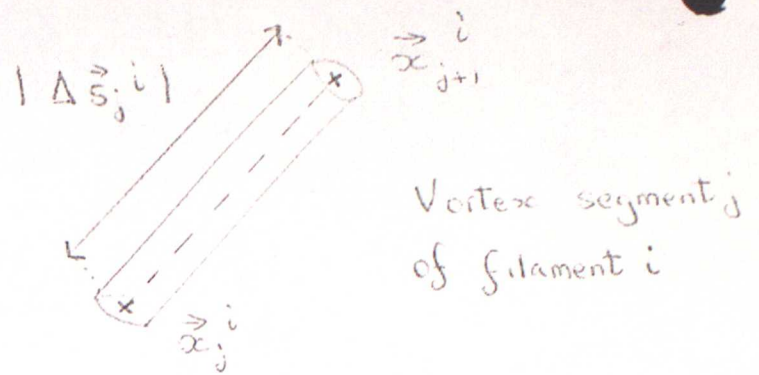 |Δs⃗ⱼⁱ|
x⃗ⱼ₊₁ⁱ
Vortex segment j
of filament i
x⃗ⱼⁱ